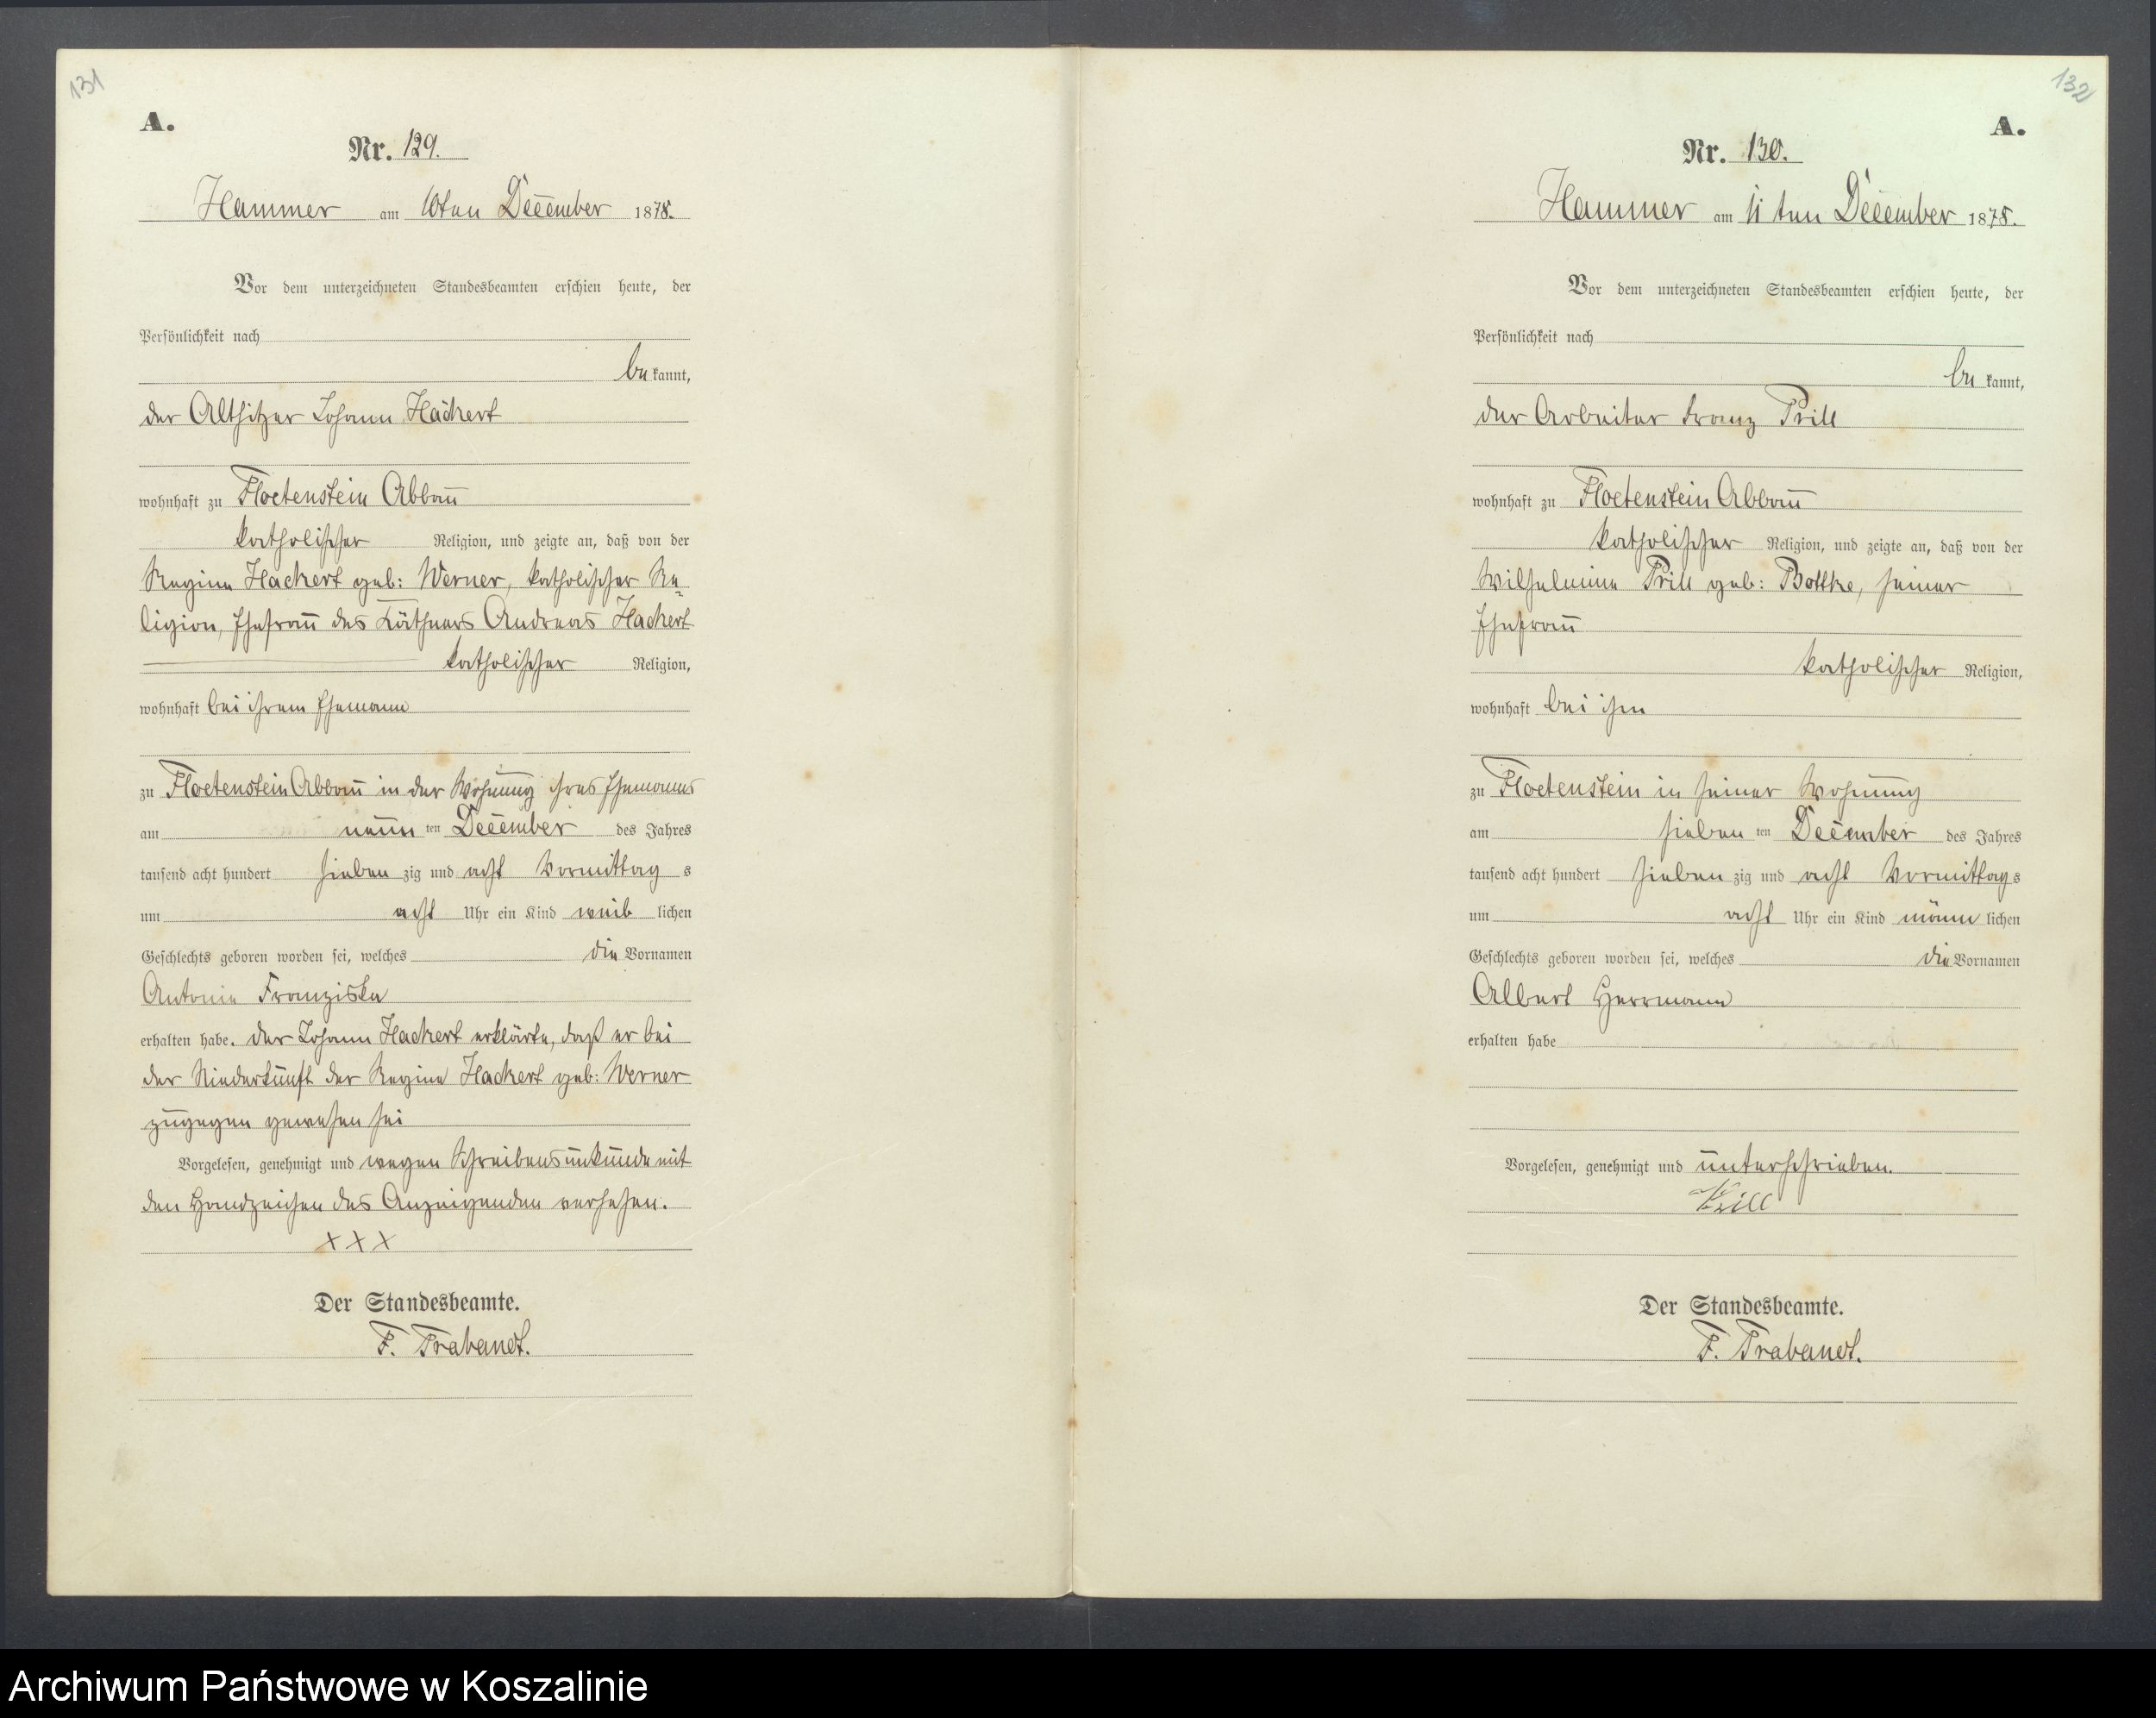 131
A.
Nr. 129.
Hammer am 10ten December 1878.
Vor dem unterzeichneten Standesbeamten erschien heute, der
Persönlichkeit nach
be kannt,
der Altsitzer Johann Hackert
wohnhaft zu Floetenstein Abbau
katholischer Religion, und zeigte an, daß von der
Regine Hackert geb: Werner, katholischer Re-
ligion, Ehefrau des Käthners Andreas Hackert
katholischer Religion,
wohnhaft bei ihrem Ehemann
zu Floetenstein Abbau in der Wohnung ihres Ehemanns
am neun ten December des Jahres
tausend acht hundert sieben zig und acht Vormittag s
um acht Uhr ein Kind weib lichen
Geschlechts geboren worden sei, welches die Vornamen
Antonie Franziska
erhalten habe. der Johann Hackert erklärte, daß er bei
der Niederkunft der Regine Hackert geb: Werner
zugegen gewesen sei
Vorgelesen, genehmigt und wegen Schreibensunkunde mit
den Handzeichen des Anzeigenden versehen.
XXX
Der Standesbeamte.
F. Trabandt.
132
A.
Nr. 130.
Hammer am 11 ten December 1878.
Vor dem unterzeichneten Standesbeamten erschien heute, der
Persönlichkeit nach
be kannt,
der Arbeiter Franz Prill
wohnhaft zu Floetenstein Abbau
katholischer Religion, und zeigte an, daß von der
Wilhelmine Prill geb: Bottke, seiner
Ehefrau
katholischer Religion,
wohnhaft bei ihm
zu Floetenstein in seiner Wohnung
am sieben ten December des Jahres
tausend acht hundert sieben zig und acht Vormittags
um acht Uhr ein Kind männ lichen
Geschlechts geboren worden sei, welches die Vornamen
Albert Herrmann
erhalten habe
Vorgelesen, genehmigt und unterschrieben.
Prill
Der Standesbeamte.
F. Trabandt.
Archiwum Państwowe w Koszalinie